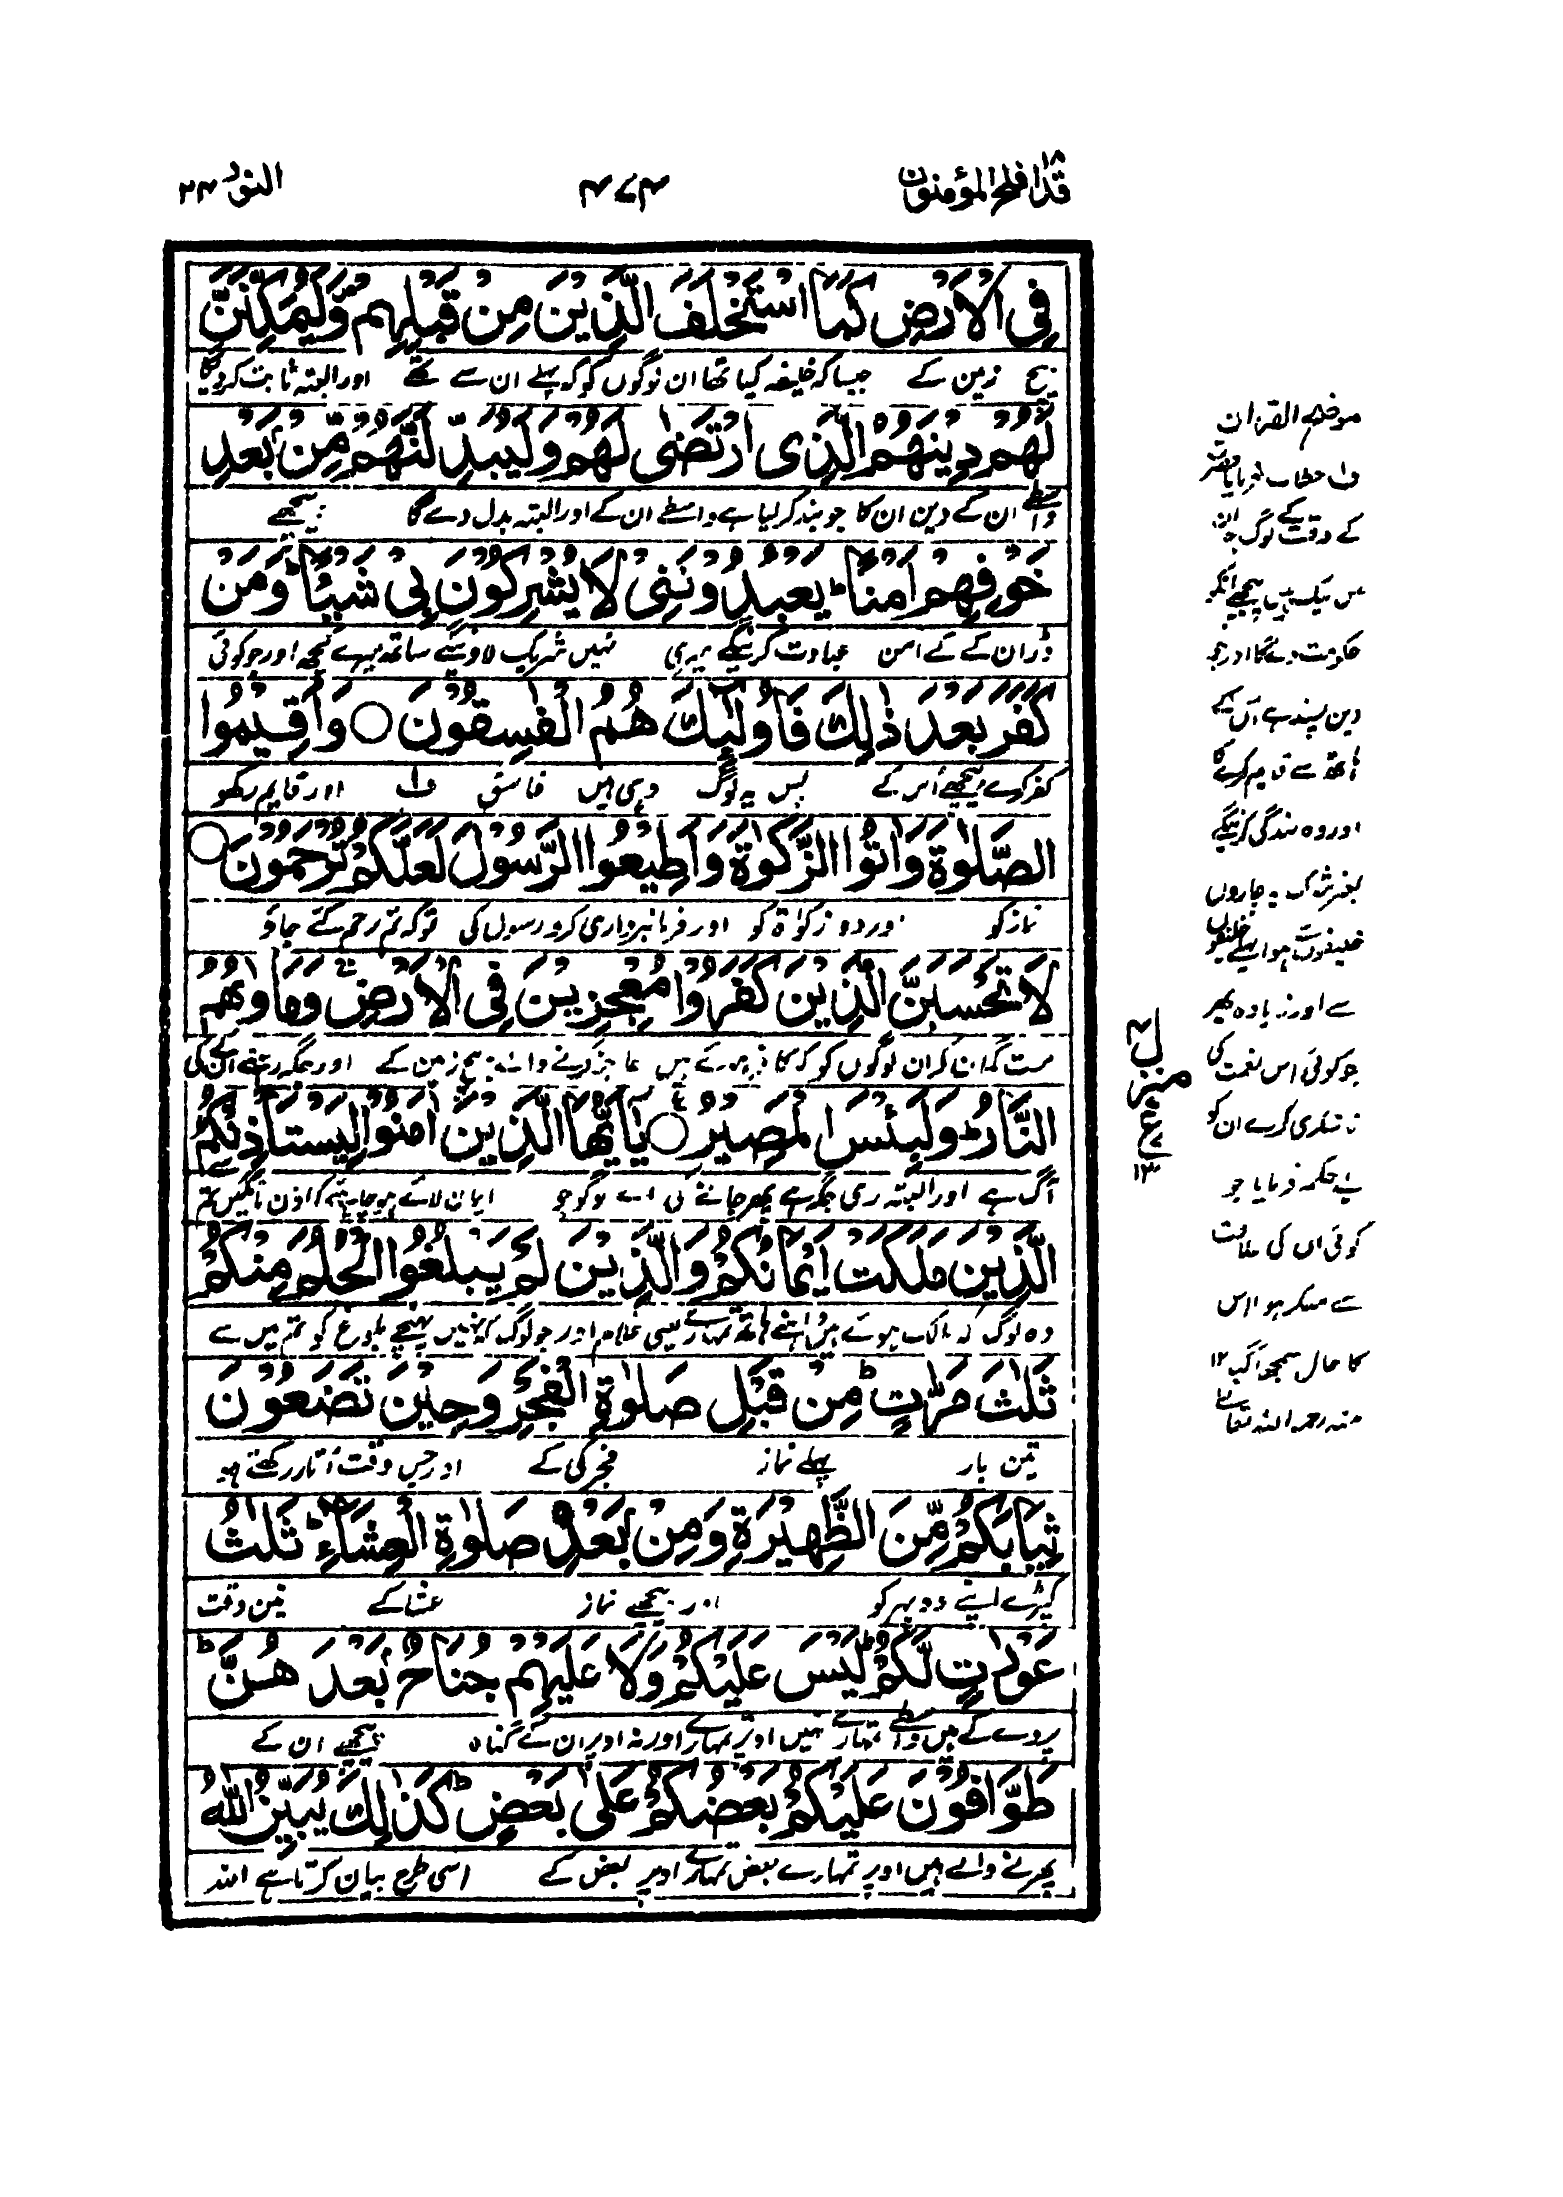 قد افلح المؤمنون ١٨
٤٧٤
النور ٢٤
فِي الْاَرْضِ كَمَا اسْتَخْلَفَ الَّذِيْنَ مِنْ قَبْلِهِمْ وَلَيُمَكِّنَنَّ
بیچ زمین کے جیسا کہ خلیفہ کیا تھا ان لوگوں کو کہ پہلے ان سے تھے اور البتہ ثابت کردیگا
لَهُمْ دِيْنَهُمُ الَّذِى ارْتَضٰى لَهُمْ وَلَيُبَدِّلَنَّهُمْ مِّنْۢ بَعْدِ
واسطے ان کے دین ان کا جو پسند کر لیا ہے واسطے ان کے اور البتہ بدل دے گا پیچھے
خَوْفِهِمْ اَمْنًا ؕ يَعْبُدُوْنَنِىْ لَا يُشْرِكُوْنَ بِىْ شَيْـًٔا ؕ وَمَنْ
ڈر ان کے کے امن عبادت کرینگے میری نہیں شریک لاوینگے ساتھ میرے کچھ اور جو کوئی
كَفَرَ بَعْدَ ذٰلِكَ فَاُولٰٓئِكَ هُمُ الْفٰسِقُوْنَ ○ وَاَقِيْمُوا
کفر کرے پیچھے اس کے پس یہ لوگ وہی ہیں فاسق ف۱ اور قایم رکھو
الصَّلٰوةَ وَاٰتُوا الزَّكٰوةَ وَاَطِيْعُوا الرَّسُوْلَ لَعَلَّكُمْ تُرْحَمُوْنَ ○
نماز کو اور دو زکوٰة کو اور فرمانبرداری کرو رسول کی توکہ تم رحم کئے جاؤ
لَا تَحْسَبَنَّ الَّذِيْنَ كَفَرُوْا مُعْجِزِيْنَ فِى الْاَرْضِ ۚ وَمَاْوٰىهُمُ
مت گمان کر ان لوگوں کو کہ کافر ہوئے ہیں عاجز کرنے والے بیچ زمین کے اور جگہ رہنے ان کے کی
النَّارُ ؕ وَلَبِئْسَ الْمَصِيْرُ ○ يٰٓاَيُّهَا الَّذِيْنَ اٰمَنُوْا لِيَسْتَاْذِنْكُمُ
آگ ہے اور البتہ بری جگہ ہے پھر جانے کی اے لوگو جو ایمان لائے ہو چاہئے کہ اذن مانگیں تم سے
الَّذِيْنَ مَلَكَتْ اَيْمَانُكُمْ وَالَّذِيْنَ لَمْ يَبْلُغُوا الْحُلُمَ مِنْكُمْ
وہ لوگ کہ مالک ہوئے ہیں داہنے ہاتھ تمہارے یعنی غلام اور جو لوگ کہ نہیں پہنچے بلوغ کو تم میں سے
ثَلٰثَ مَرّٰتٍ ؕ مِنْ قَبْلِ صَلٰوةِ الْفَجْرِ وَحِيْنَ تَضَعُوْنَ
تین بار پہلے نماز فجر کی کے اور جس وقت اتار رکھتے ہو
ثِيَابَكُمْ مِّنَ الظَّهِيْرَةِ وَمِنْۢ بَعْدِ صَلٰوةِ الْعِشَآءِ ؕ ثَلٰثُ
کپڑے اپنے دوپہر کو اور پیچھے نماز عشا کے تین وقت
عَوْرٰتٍ لَّكُمْ ؕ لَيْسَ عَلَيْكُمْ وَلَا عَلَيْهِمْ جُنَاحٌۢ بَعْدَ هُنَّ ؕ
پردے کے ہیں واسطے تمہارے نہیں اوپر تمہارے اور نہ اوپر ان کے گناہ پیچھے ان کے
طَوّٰفُوْنَ عَلَيْكُمْ بَعْضُكُمْ عَلٰى بَعْضٍ ؕ كَذٰلِكَ يُبَيِّنُ اللّٰهُ
پھرنے والے ہیں اوپر تمہارے بعض تمہارے اوپر بعض کے اسی طرح بیان کرتا ہے اللہ
موضح القرآن
ف۱ خطاب فرمایا حضرت
کے وقت کے لوگ جو ان
میں نیک ہیں پیچھے انکو
حکومت دے گا اور جو
دین پسند ہے ان کے
ہاتھ سے قایم کرے گا
اور وہ بندگی کرینگے
بغیر شرک یہ چاروں
خلیفوں سے ہوا پہلے خلیفوں
سے اور زیادہ پھر
جو کوئی اس نعمت کی
ناشکری کرے ان کو
بے حکم فرمایا جو
کوئی ان کی خلافت
سے منکر ہوا اس
کا حال سمجھا گیا ١٢
منہ رحمہ اللہ تعالےٰ
منزل ٤
ع ٧
١٣